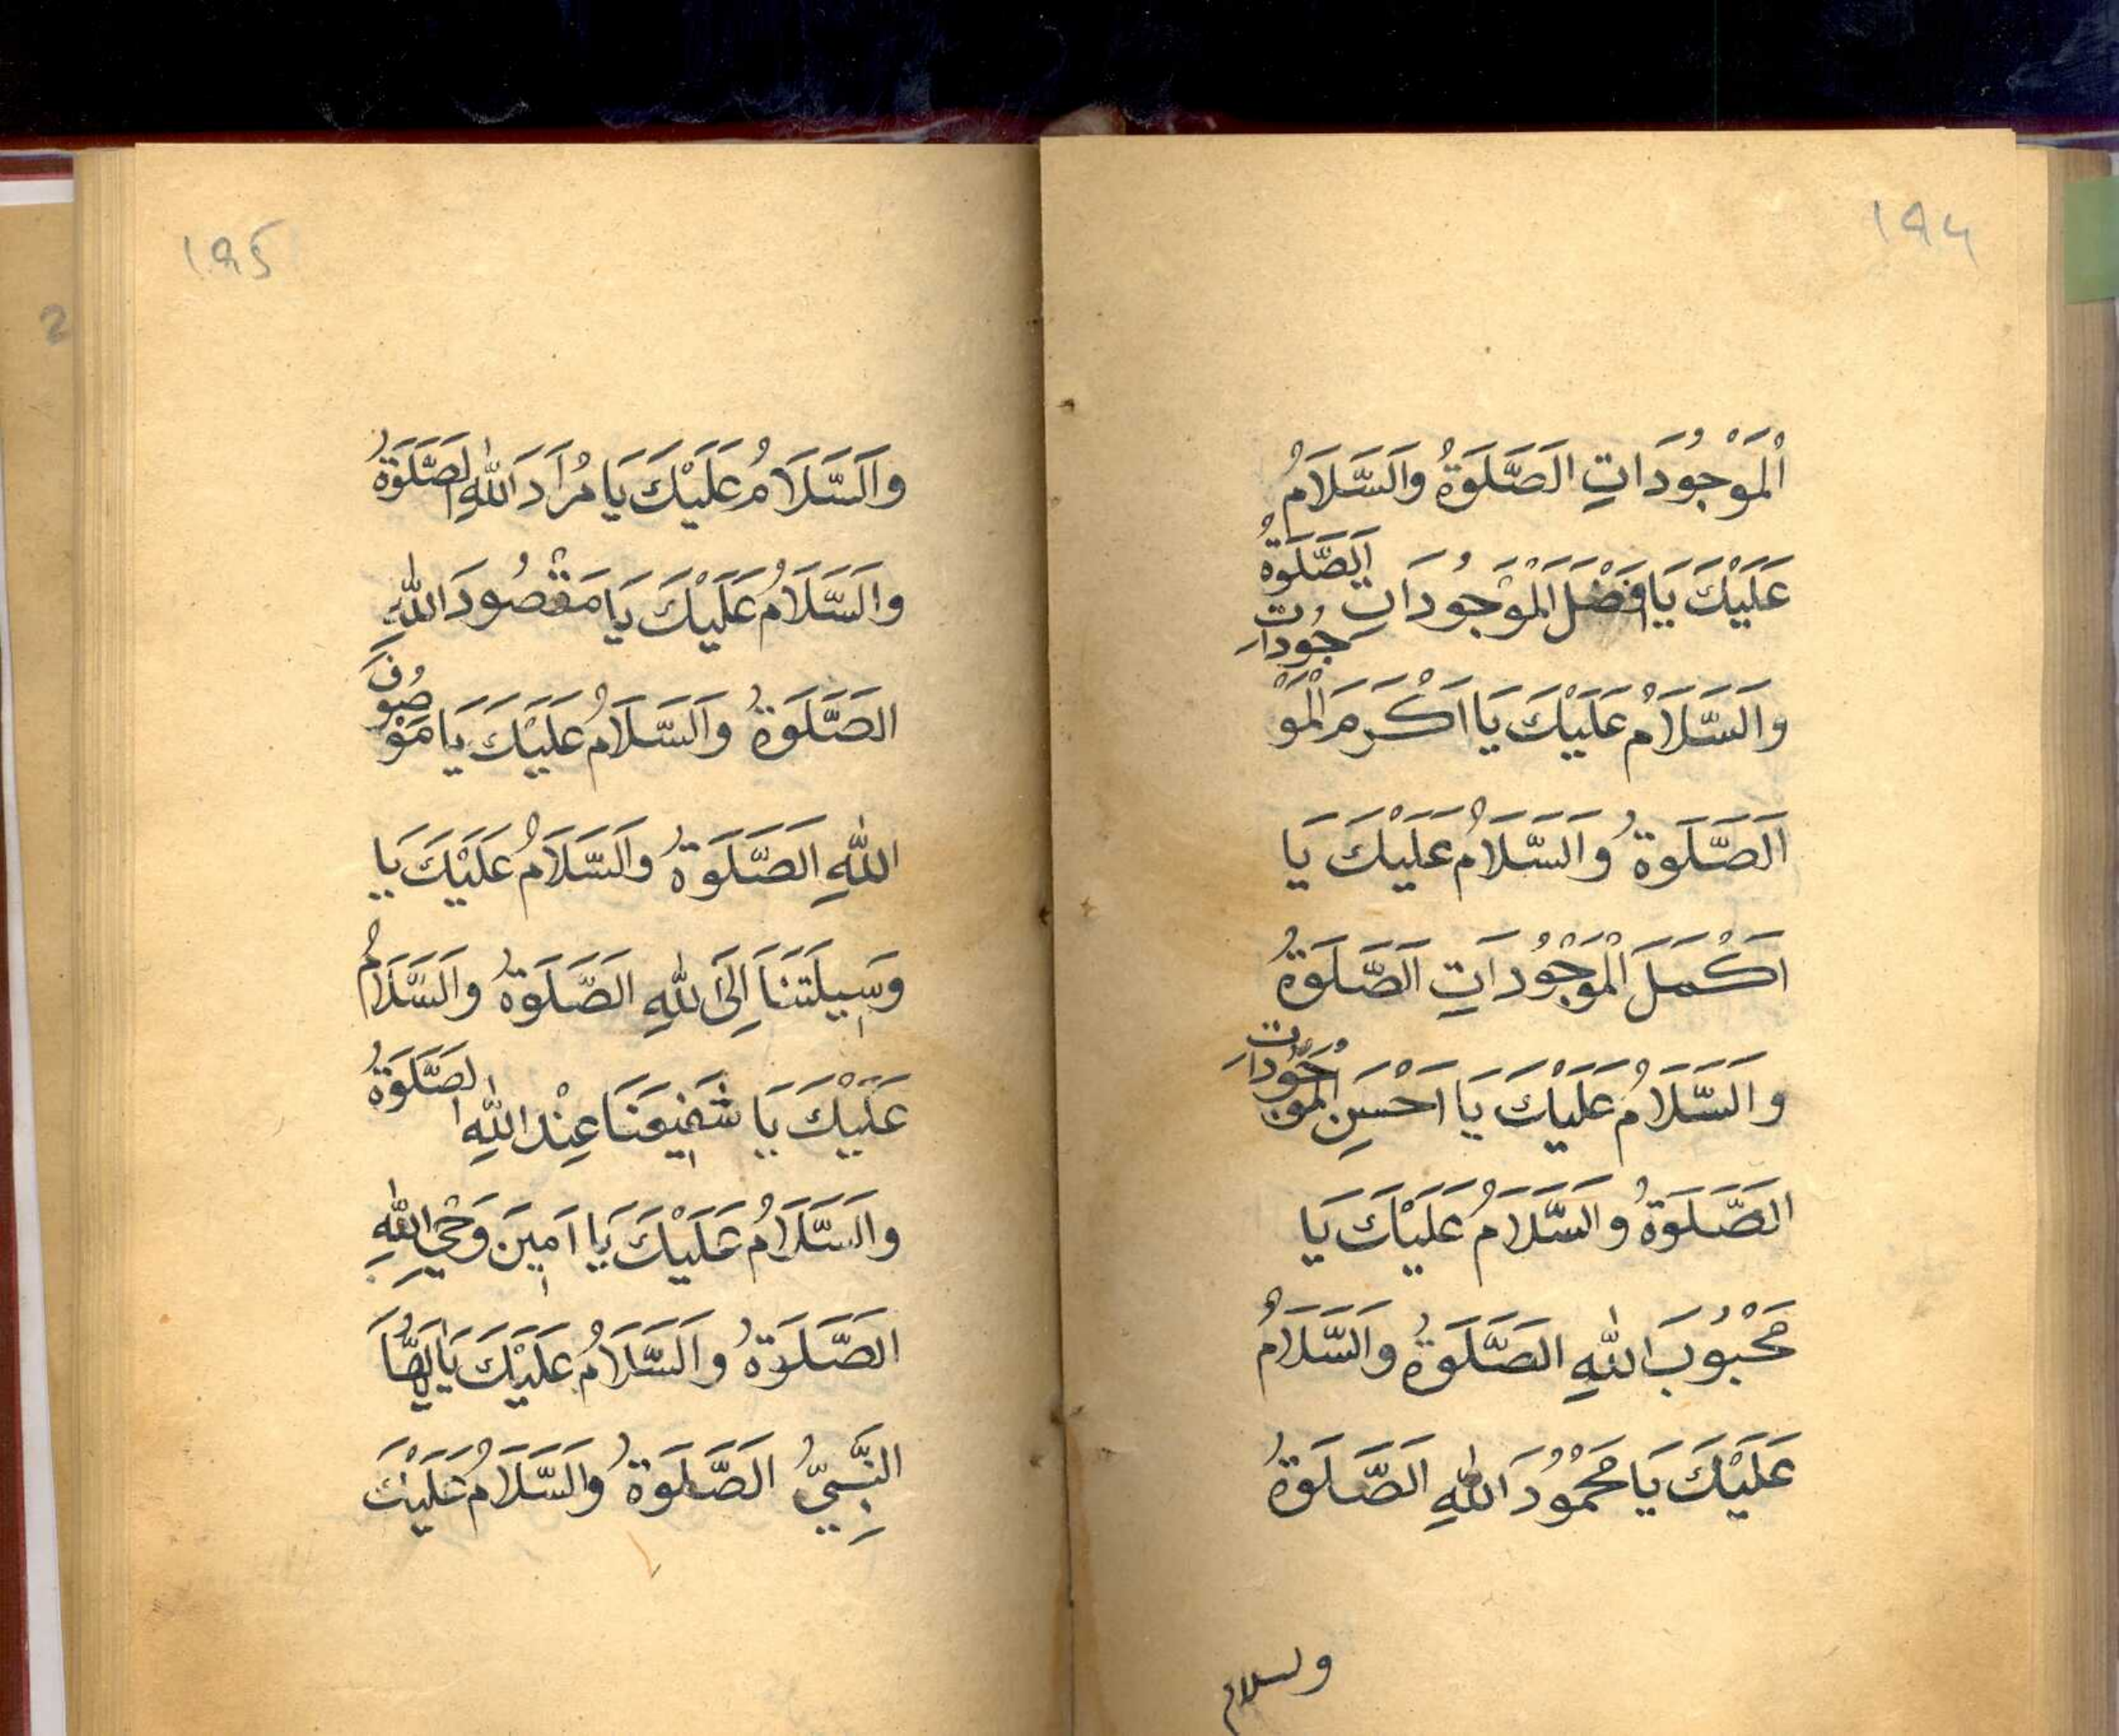 ۱۹۴
اَلْمَوْجُودَاتِ اَلصَّلَوةُ وَالسَّلَامُ
عَلَيْكَ يَا اَفْضَلَ الْمَوْجُودَاتِ اَلصَّلَوةُ
وَالسَّلَامُ عَلَيْكَ يَا اَكْرَمَ الْمَوْجُودَاتِ
اَلصَّلَوةُ وَالسَّلَامُ عَلَيْكَ يَا
اَكْمَلَ الْمَوْجُودَاتِ اَلصَّلَوةُ
وَالسَّلَامُ عَلَيْكَ يَا اَحْسَنِ الْمَوْجُودَاتِ
اَلصَّلَوةُ وَالسَّلَامُ عَلَيْكَ يَا
مَحْبُوبَ اللهِ اَلصَّلَوةُ وَالسَّلَامُ
عَلَيْكَ يَا مَحْمُودَ اللهِ اَلصَّلَوةُ
ولسلام
۱۹۵
وَالسَّلَامُ عَلَيْكَ يَا مُرَادَ اللهِ الصَّلَوةُ
وَالسَّلَامُ عَلَيْكَ يَا مَقْصُودَ اللهِ
اَلصَّلَوةُ وَالسَّلَامُ عَلَيْكَ يَا مَوْصُوفَ
اللهِ اَلصَّلَوةُ وَالسَّلَامُ عَلَيْكَ يَا
وَسِيلَتَنَا اِلَى اللهِ اَلصَّلَوةُ وَالسَّلَامُ
عَلَيْكَ يَا شَفِيعَنَا عِنْدَ اللهِ الصَّلَوةُ
وَالسَّلَامُ عَلَيْكَ يَا اَمِينَ وَحْيِ اللهِ
اَلصَّلَوةُ وَالسَّلَامُ عَلَيْكَ يَا اَيُّهَا
النَّبِيُّ اَلصَّلَوةُ وَالسَّلَامُ عَلَيْكَ